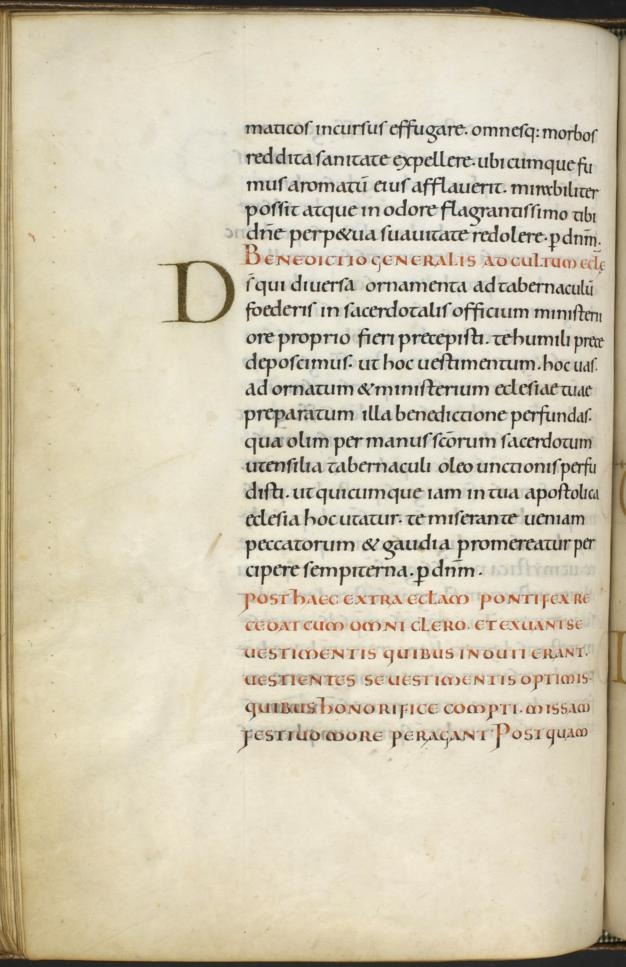 maticos incursus effugare. omnesq: morbos
reddita sanitate expellere. ubicumque fu
mus aromatū eius afflauerit. mirabiliter
possit atque in odore flagrantissimo tibi
dn̄e perp&ua suauitate redolere. p dnm̄.
BENEDICTIO GENERALIS AD CULTUM eccłe
D s̄ qui diuersa ornamenta ad tabernaculū
foederis in sacerdotalis officium ministerii
ore proprio fieri precepisti. te humili prece
deposcimus. ut hoc uestimentum. hoc uas.
ad ornatum & ministerium eclesiae tuae
preparatum illa benedictione perfundas.
qua olim per manus sc̄orum sacerdotum
utensilia tabernaculi oleo unctionis perfu
disti. ut quicumque iam in tua apostolica
eclesia hoc utatur. te miserante ueniam
peccatorum & gaudia promereatur per
cipere sempiterna. p dnm̄.
POST HAEC EXTRA ECLAM PONTIFEX RE
CEDAT CUM OMNI CLERO. ET EXUANT SE
UESTIMENTIS QUIBUS INDUTI ERANT.
UESTIENTES SE UESTIMENTIS OPTIMIS.
QUIBUS HONORIFICE COMPTI. MISSAM
FESTIUO MORE PERAGANT POSTQUAM